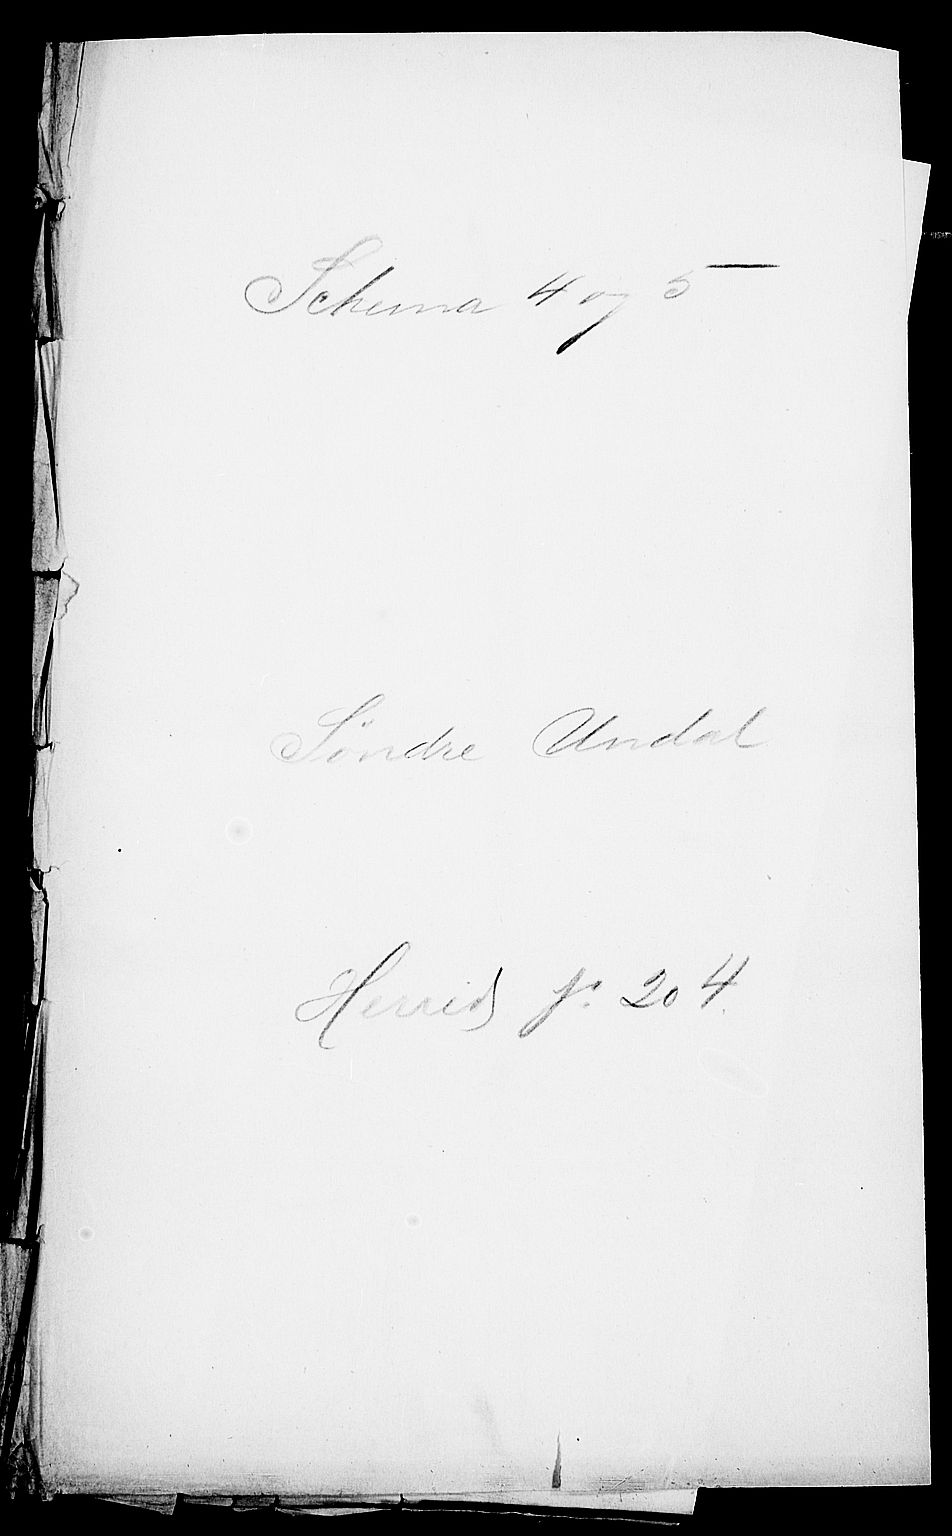 Schema 4 og 5
Søndre Undal
Herred № 204.